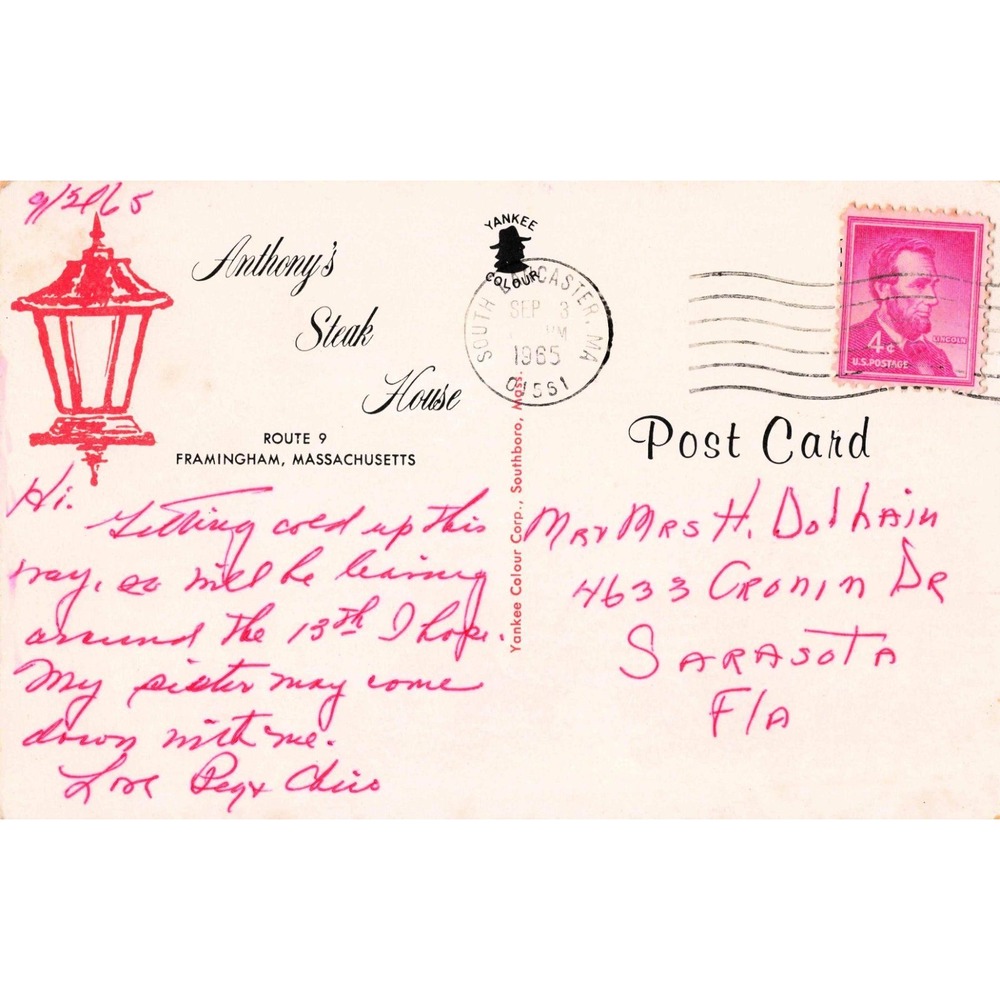 Anthony's
Steak
House
ROUTE 9
FRAMINGHAM, MASSACHUSETTS
Hi.
Getting cold up this
way, so will be leaving
around the 13th I hope.
My sister may come
down with me.
Love Peg & Chico
YANKEE
COLOUR
SOUTH LANCASTER, MA
SEP 3
PM
1965
01561
Yankee Colour Corp., Southboro, Mass.
4¢
LINCOLN
U.S. POSTAGE
Post Card
Mr & Mrs H. Dolhain
4633 Cronin Dr
Sarasota
Fla